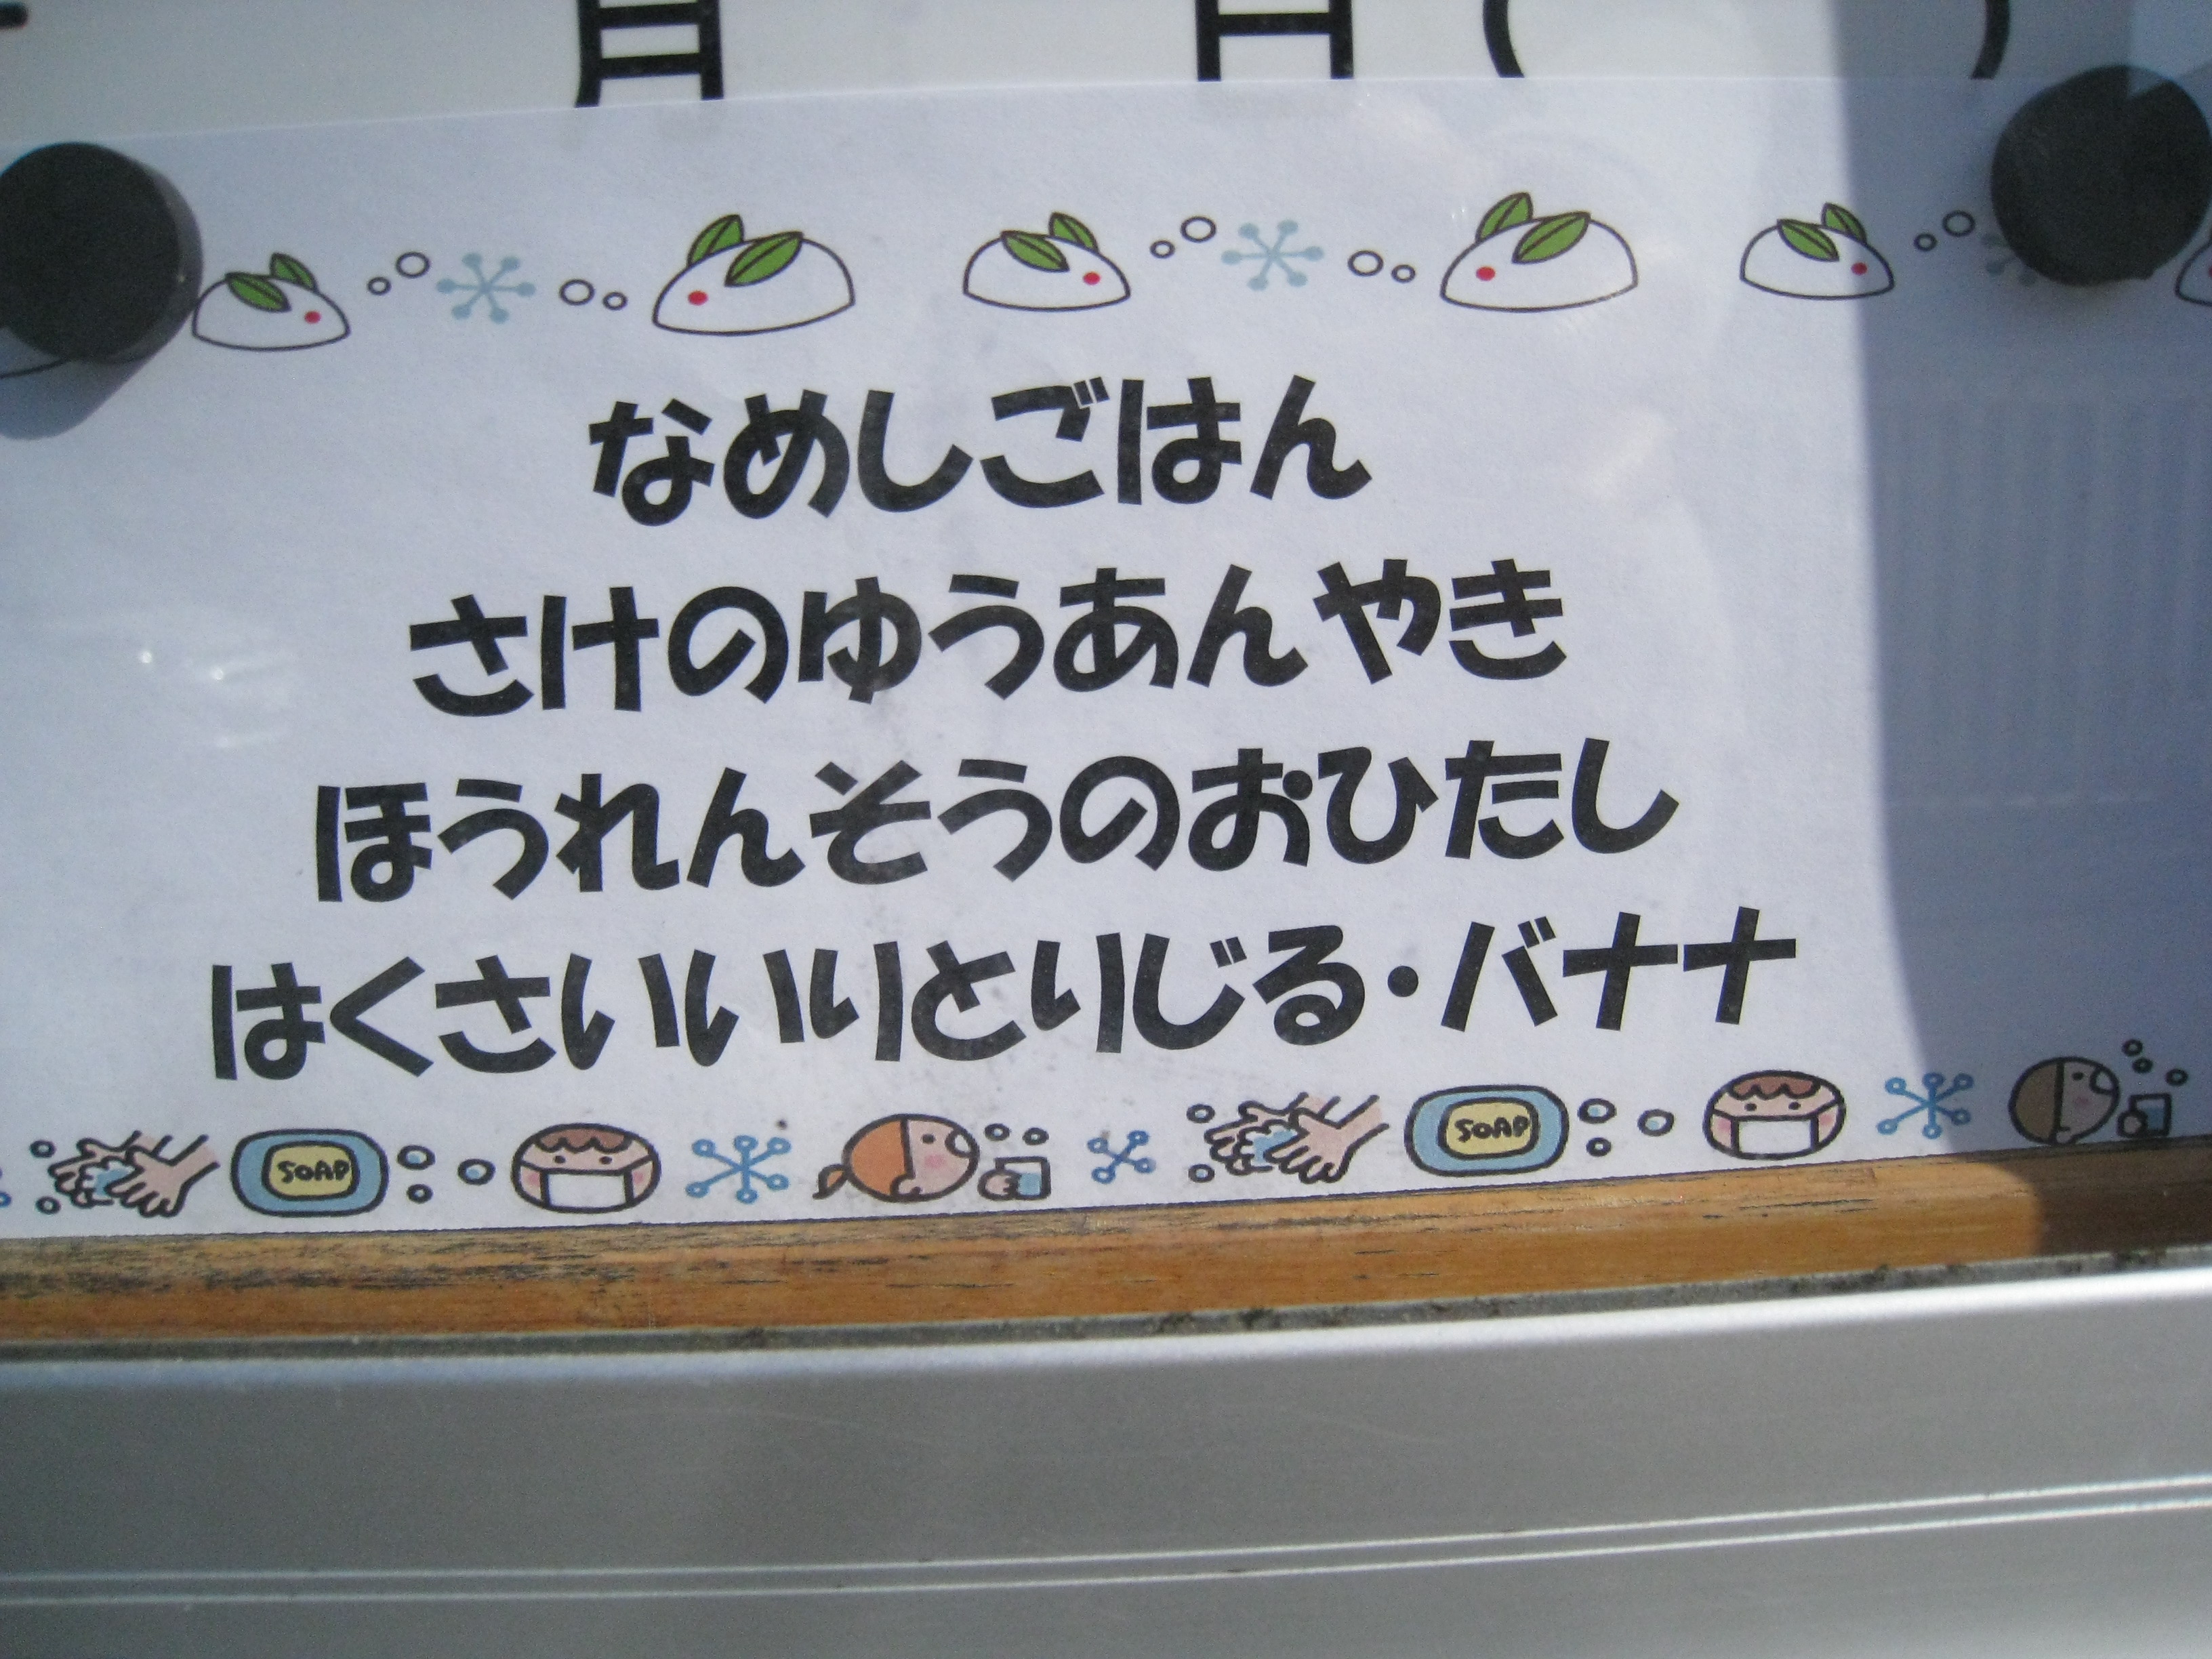 月 日 ( )
なめしごはん
さけのゆうあんやき
ほうれんそうのおひたし
はくさいいりとりじる・バナナ
SOAP SOAP